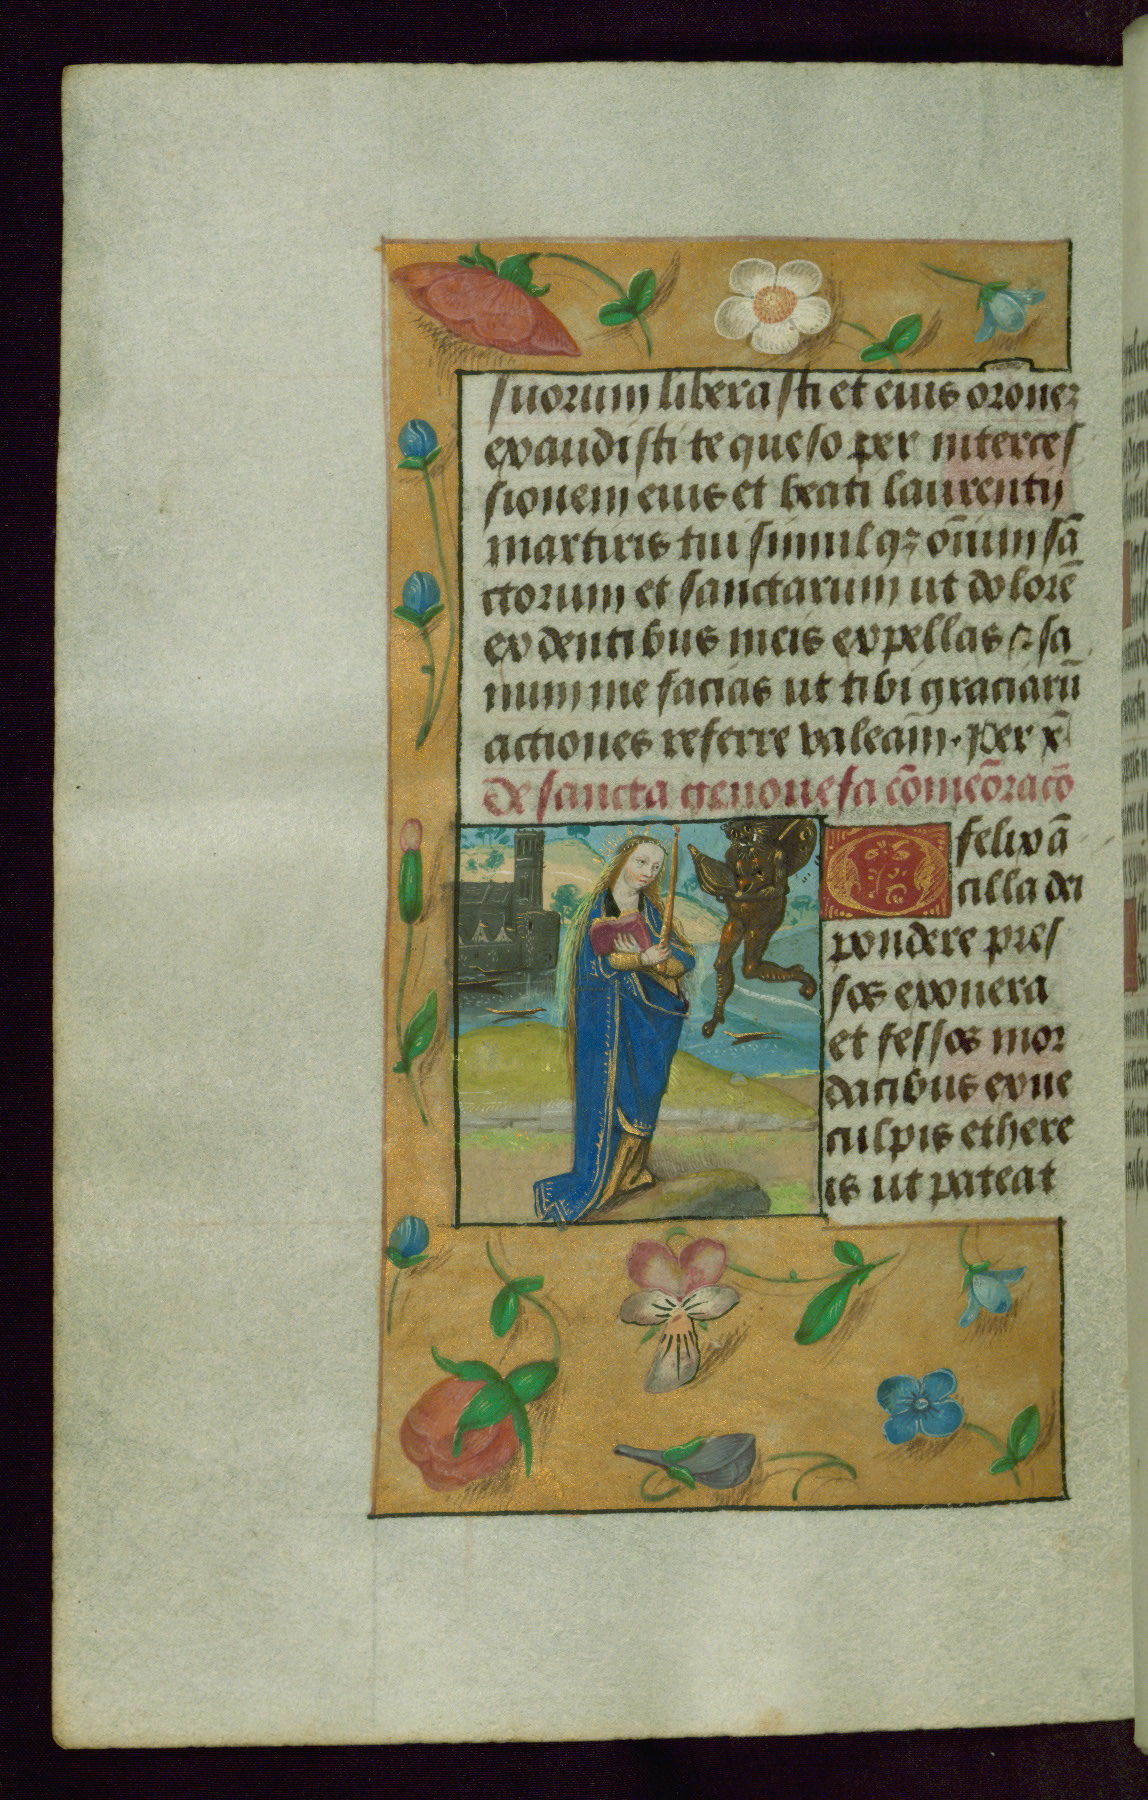 suorum liberasti et eius oronez
exaudisti te queso per interces
sionem eius et beati laurentij
martiris tui simul qz om̄ium sā
ctorum et sanctarum ut dolorē
ex dentibus meis expellas ⁊ sa
num me facias ut tibi graciarū
actiones referre valeam̄. per xp̄
De sancta genouefa cōmeōracō
O felix ā
cilla dei
pondere pres
sos exonera
et fessos mor
dacibus exue
culpis ethere
is ut pateat